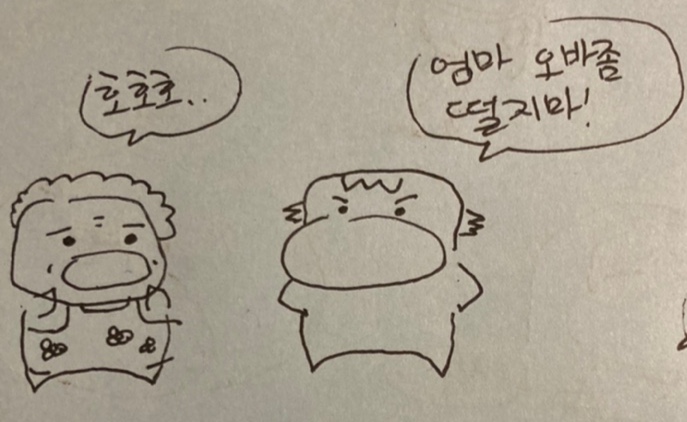 호호호..
엄마 오바좀
떨지마!